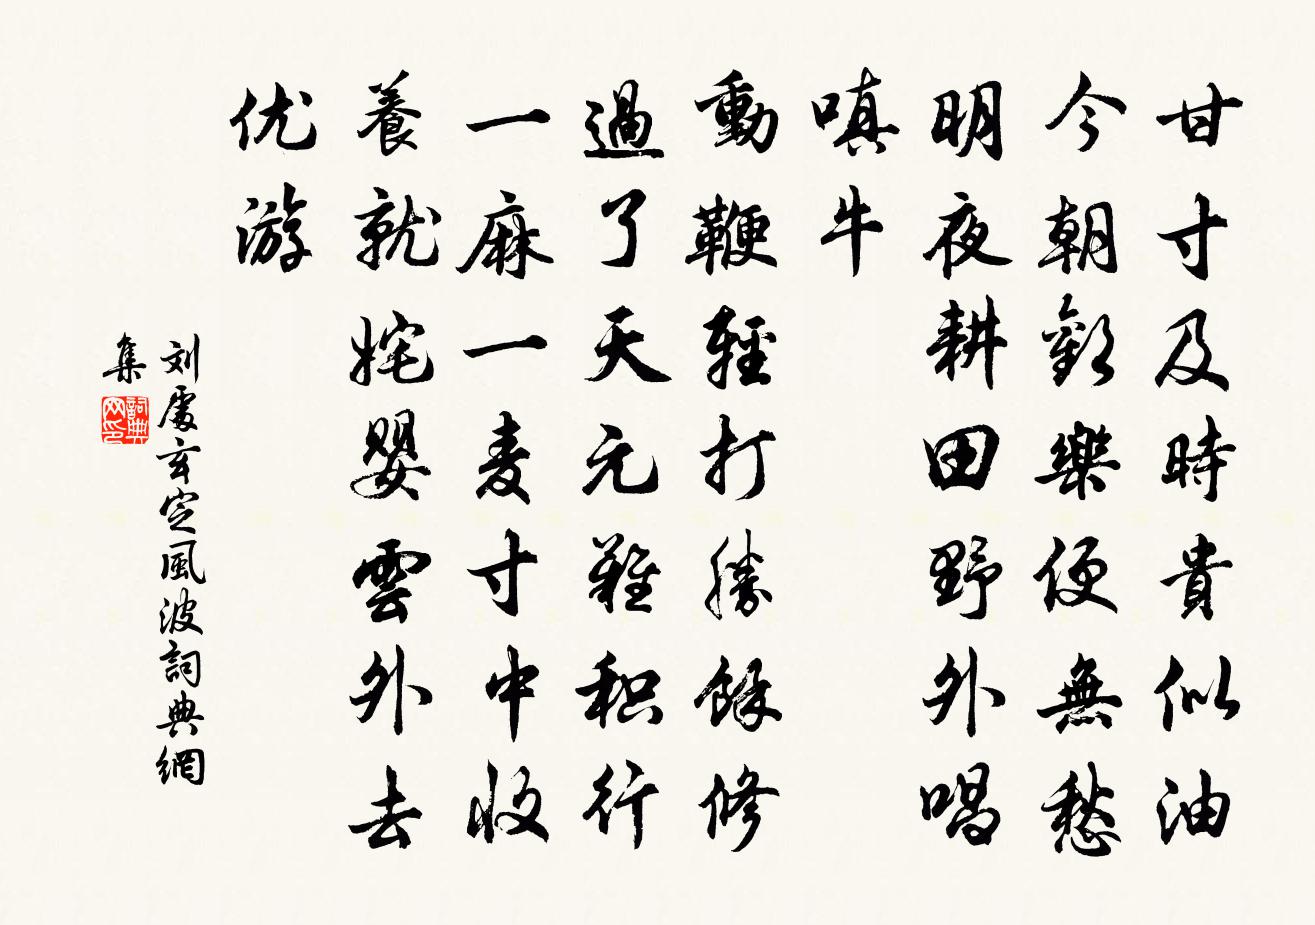 甘寸及時貴似油
今朝歡樂便無愁
明夜耕田野外唱
嗔牛
動鞭輕打勝餘修
過了天元難积行
一麻一麦寸中收
養就姹嬰雲外去
优游
刘處玄定風波詞典網
集
詞典网印